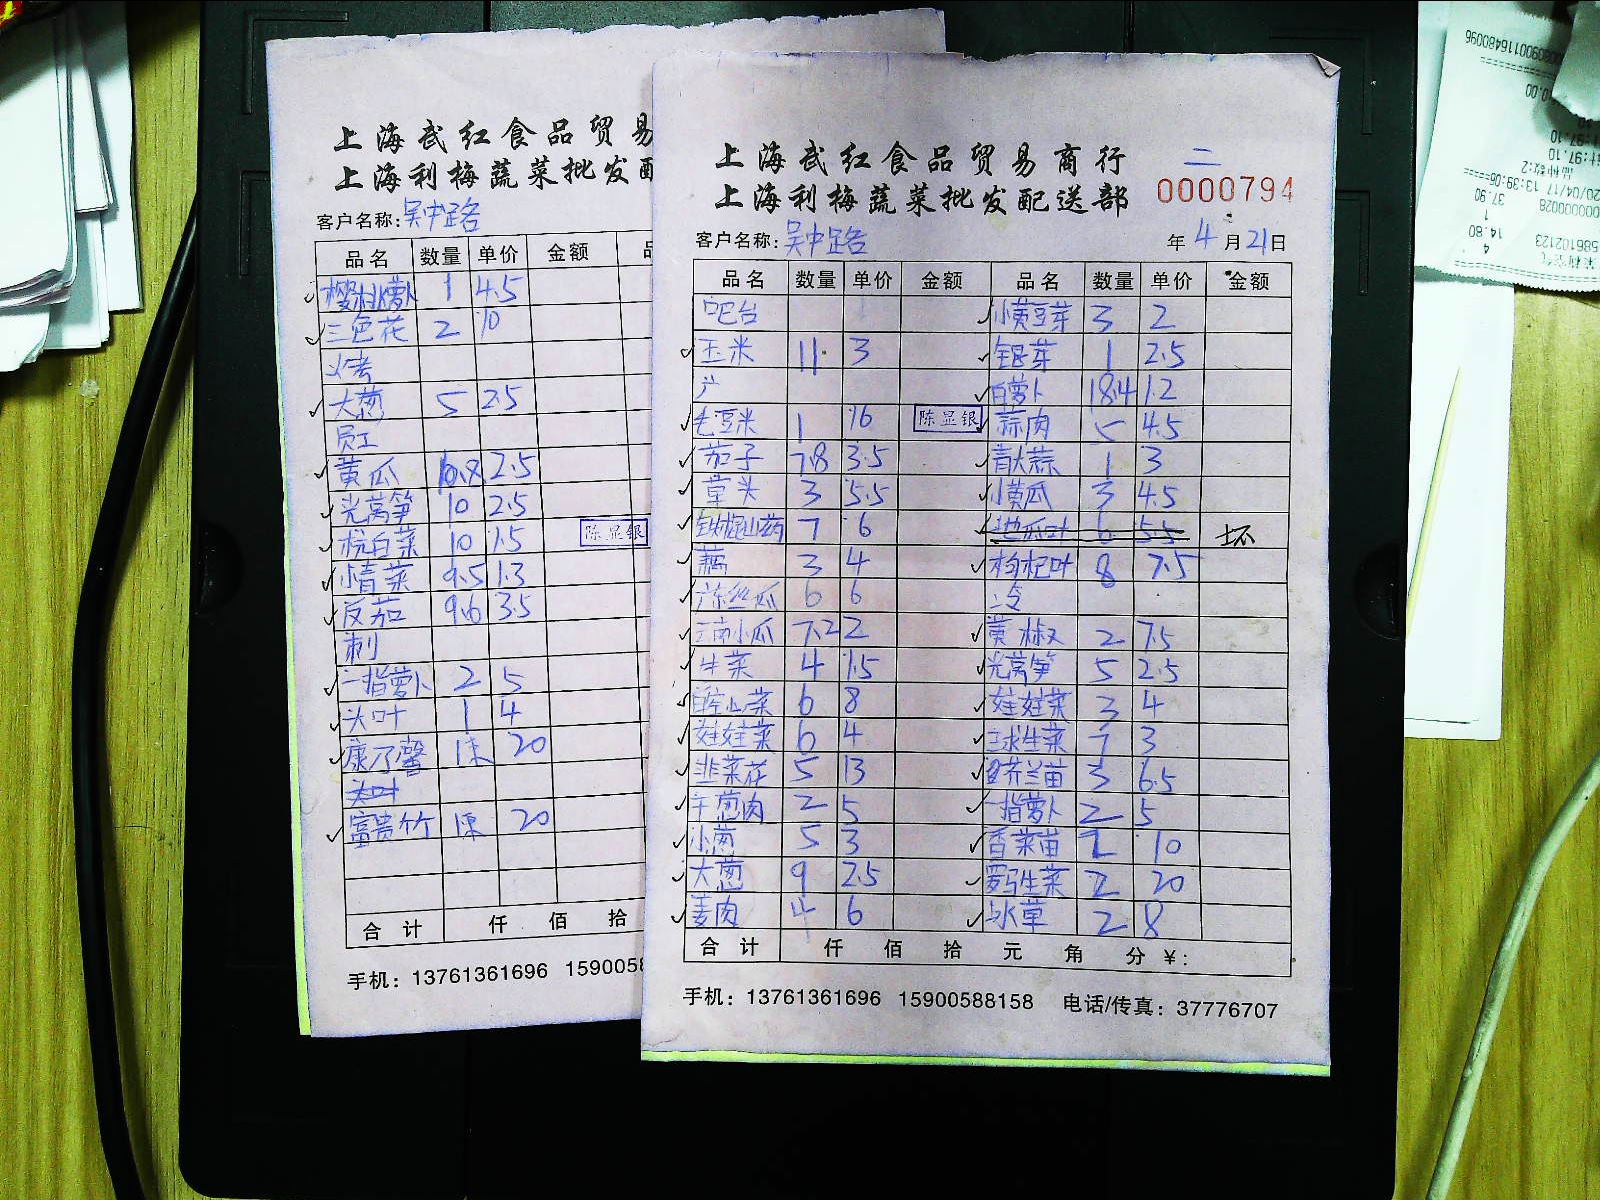 上海武红食品贸易
上海利梅蔬菜批发配
客户名称: 吴中路
品名 数量 单价 金额 品
樱桃萝卜 1 4.5
三色花 2 10
火考
大葱 5 2.5
员工
黄瓜 10.8 2.5
光莴笋 10 2.5
杭白菜 10 1.5
陈显银
小青菜 9.5 1.3
反茄 9.6 3.5
刺
一指萝卜 2 5
头叶 1 4
康乃馨 1束 20
头叶
富贵竹 1束 20
合计 仟 佰 拾
手机: 13761361696 1590058
上海武红食品贸易商行
上海利梅蔬菜批发配送部
二
0000794
客户名称: 吴中路 年 4 月 21 日
品名 数量 单价 金额 品名 数量 单价 金额
吧台 小黄豆芽 3 2
玉米 11. 3 银芽 1 2.5
白萝卜 18.4 1.2
毛豆米 1 16 陈显银 蒜肉 5 4.5
茄子 7.8 3.5 青大蒜 1 3
草头 3 5.5 小黄瓜 3 4.5
铁棍山药 7 6 地瓜叶 6 5.5 坏
藕 3 4 枸杞叶 8 7.5
广东丝瓜 6 6 冷
云南小瓜 7.2 2 黄椒 2 7.5
生菜 4 1.5 光莴笋 5 2.5
6 8 娃娃菜 3 4
娃娃菜 6 4 球生菜 7 3
韭菜花 5 13 芥兰苗 3 6.5
羊葱肉 2 5 一指萝卜 2 5
小葱 5 3 香菜苗 2 10
大葱 9 2.5 罗马生菜 2 20
姜肉 4 6 水草 2 8
合计 仟 佰 拾 元 角 分 ¥:
手机: 13761361696 15900588158 电话/传真: 37776707